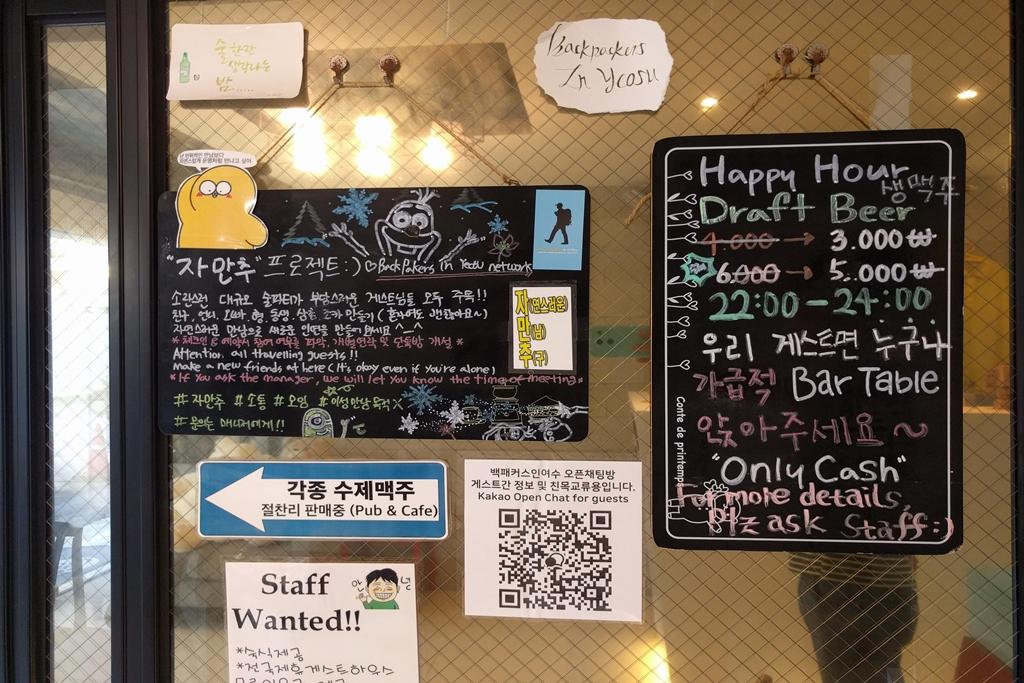 술 한잔
생각나는
밤.....
Backpackers
In Yeosu
"자만추" 프로젝트:) Backpackers In Yeosu network
소란스런 대규모 술파티가 부담스러운 게스트님들 모두 주목!!
친구, 언니, 오빠, 형, 동생, 삼촌, 조카 만들기 (혼자여도 괜찮아요~)
자연스러운 만남으로 새로운 인연을 만들어 봐요 ^_^
Attention all travelling guests!!
make a new friends at here (It's okay even if you're alone)
*If you ask the manager, we will let you know the time of meeting*
#자만추 #소통 #모임 #이성만남 목적X
#문의는 매니저에게!!
자(연스러운)
만(남)
추(구)
Happy Hour
생맥주
Draft Beer
4.000 → 3.000₩
6.000 → 5.000₩
22:00 - 24:00
우리 게스트면 누구나
가급적 Bar Table
앉아주세요~
"Only Cash"
For more details,
Plz ask Staff:)
Conte de printemps
각종 수제맥주
절찬리 판매중 (Pub & Cafe)
백패커스인여수 오픈채팅방
게스트간 정보 및 친목교류용입니다.
Kakao Open Chat for guests
Staff
안녕
Wanted!!
*숙식제공
*전국제휴게스트하우스